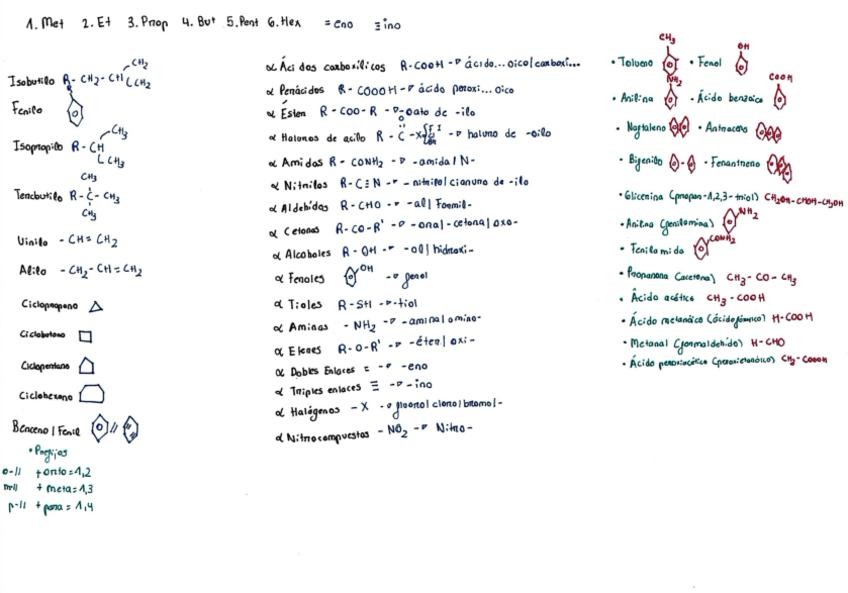 1. Met 2. Et 3. Prop 4. But 5. Pent 6. Hex = eno ≡ ino
Isobutilo R - CH2 - CH CH2 CH2
Fenilo R
Isopropilo R - CH CH3 CH3
Tercbutilo R - C - CH3 CH3 CH3
Vinilo - CH = CH2
Alilo - CH2 - CH = CH2
Ciclopropano
Ciclobutano
Ciclopentano
Ciclohexano
Benceno / Fenil //
• Prefijos
o-// + orto = 1,2
m-// + meta = 1,3
p-// + para = 1,4
∝ Ácidos carboxílicos R-COOH -> ácido...oico/carboxi...
∝ Perácidos R - COOOH -> ácido peroxi...oico
∝ Éster R - COO - R -> oato de -ilo
∝ Halunos de acilo R - C - X O -> haluno de -oilo
∝ Amidas R - CONH2 -> -amida / N-
∝ Nitrilos R - C ≡ N -> - nitrilo / cianuro de -ilo
∝ Aldehídos R - CHO -> -al / Formil-
∝ Cetonas R - CO - R' -> -ona / -cetona / oxo-
∝ Alcoholes R - OH -> -ol / hidroxi-
∝ Fenoles OH -> fenol
∝ Tioles R - SH -> -tiol
∝ Aminas - NH2 -> -amina / amino-
∝ Éteres R - O - R' -> -éter / oxi -
∝ Dobles Enlaces = -> -eno
∝ Triples enlaces ≡ -> -ino
∝ Halógenos - X -> fluoro / cloro / bromo/ -
∝ Nitrocompuestos - NO2 -> Nitro -
• Tolueno CH3 • Fenol OH
• Anilina NH2 • Ácido benzoico COOH
• Naftaleno • Antraceno
• Bifenilo • Fenantreno
• Glicerina (propan-1,2,3-triol) CH2OH - CHOH - CH2OH
• Anilina (fenilamina) NH2
• Fenilamida CONH2
• Propanona (acetona) CH3 - CO - CH3
• Ácido acético CH3 - COOH
• Ácido metanóico (ácido fórmico) H-COOH
• Metanal (formaldehído) H - CHO
• Ácido peroxiacético (peroxietanóico) CH3-COOOH